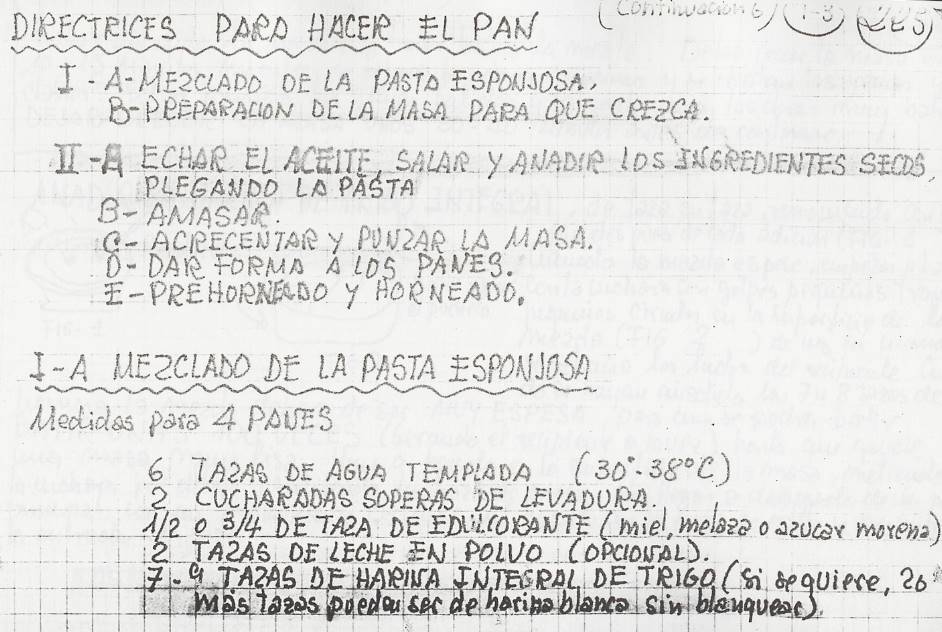 (Continuación 6) (1-3)
DIRECTRICES PARA HACER EL PAN
I A-MEZCLADO DE LA PASTA ESPONJOSA.
B-PREPARACION DE LA MASA PARA QUE CREZCA.
II-A ECHAR EL ACEITE, SALAR Y AÑADIR LOS INGREDIENTES SECOS,
PLEGANDO LA PASTA
B-AMASAR
C-ACRECENTAR Y PUNZAR LA MASA.
D-DAR FORMA A LOS PANES.
E-PREHORNEADO Y HORNEADO.
I-A MEZCLADO DE LA PASTA ESPONJOSA
Medidas para 4 PANES
6 TAZAS DE AGUA TEMPLADA (30°-38°C)
2 CUCHARADAS SOPERAS DE LEVADURA.
1/2 o 3/4 DE TAZA DE EDULCORANTE (miel, melaza o azucar morena)
2 TAZAS DE LECHE EN POLVO (OPCIONAL).
7-9 TAZAS DE HARINA INTEGRAL DE TRIGO (si se quiere, 2 ó
más tazas pueden ser de harina blanca sin blanquear).